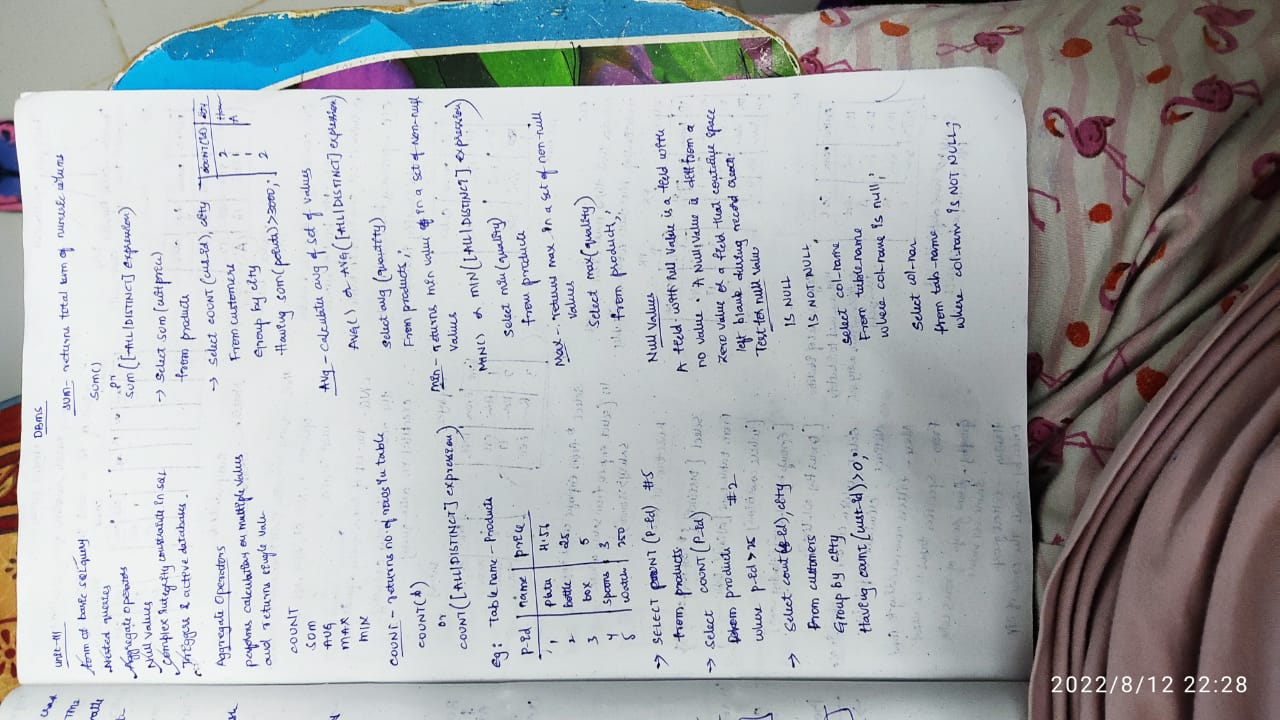 DBMS
unit-III
Form of basic SQL query
Nested queries
Aggregate operators
Null values
Complex Integrity constraints in SQL
Triggers & active databases.
Aggregate Operators
performs calculation on multiple values
and returns single value
COUNT
SUM
AUG
MAX
MIN
COUNT - returns no. of rows in table
COUNT(*)
or
COUNT([ALL|DISTINCT] expression)
Eg: Table name - Products
P-id name price
1 plate 4.56
2 bottle 25
3 box 5
4 spoons 3
5 watch 250
→ SELECT COUNT (P-id) #5
from products
→ Select COUNT (P-id)
from products #2
where p-id > 25
→ Select count id), city
from customers
Group by city
Having count (cust-id) > 0;
SUM - returns total sum of numeric colums
SUM()
or
SUM ([ALL|DISTINCT] expression)
→ Select SUM (unitprice)
from products
→ Select COUNT (cus-id), city
From customers
Group by city
Having SUM (points) > 3000;
COUNT(id) city
2
1
1
2
Avg - calculates avg of set of values
AVG() or AVG ([ALL|DISTINCT] expression)
select avg (quantity)
From products;
Min - returns min value in a set of Non-null
values
MIN() or MIN([ALL|DISTINCT] expression)
select min (quality)
from products
Max - returns max in a set of non-null
values
Select max (quality)
from products;
Null values
A field with null value is a field with
no value. A Null value is diff from a
zero value or a field that contains space
left blank during record creat.
Test for null value
IS NULL
IS NOT NULL
select col-name
From table name
where col-name is null;
select col-nam
from tab-name
where col-nam IS NOT NULL;
2022/8/12 22:28